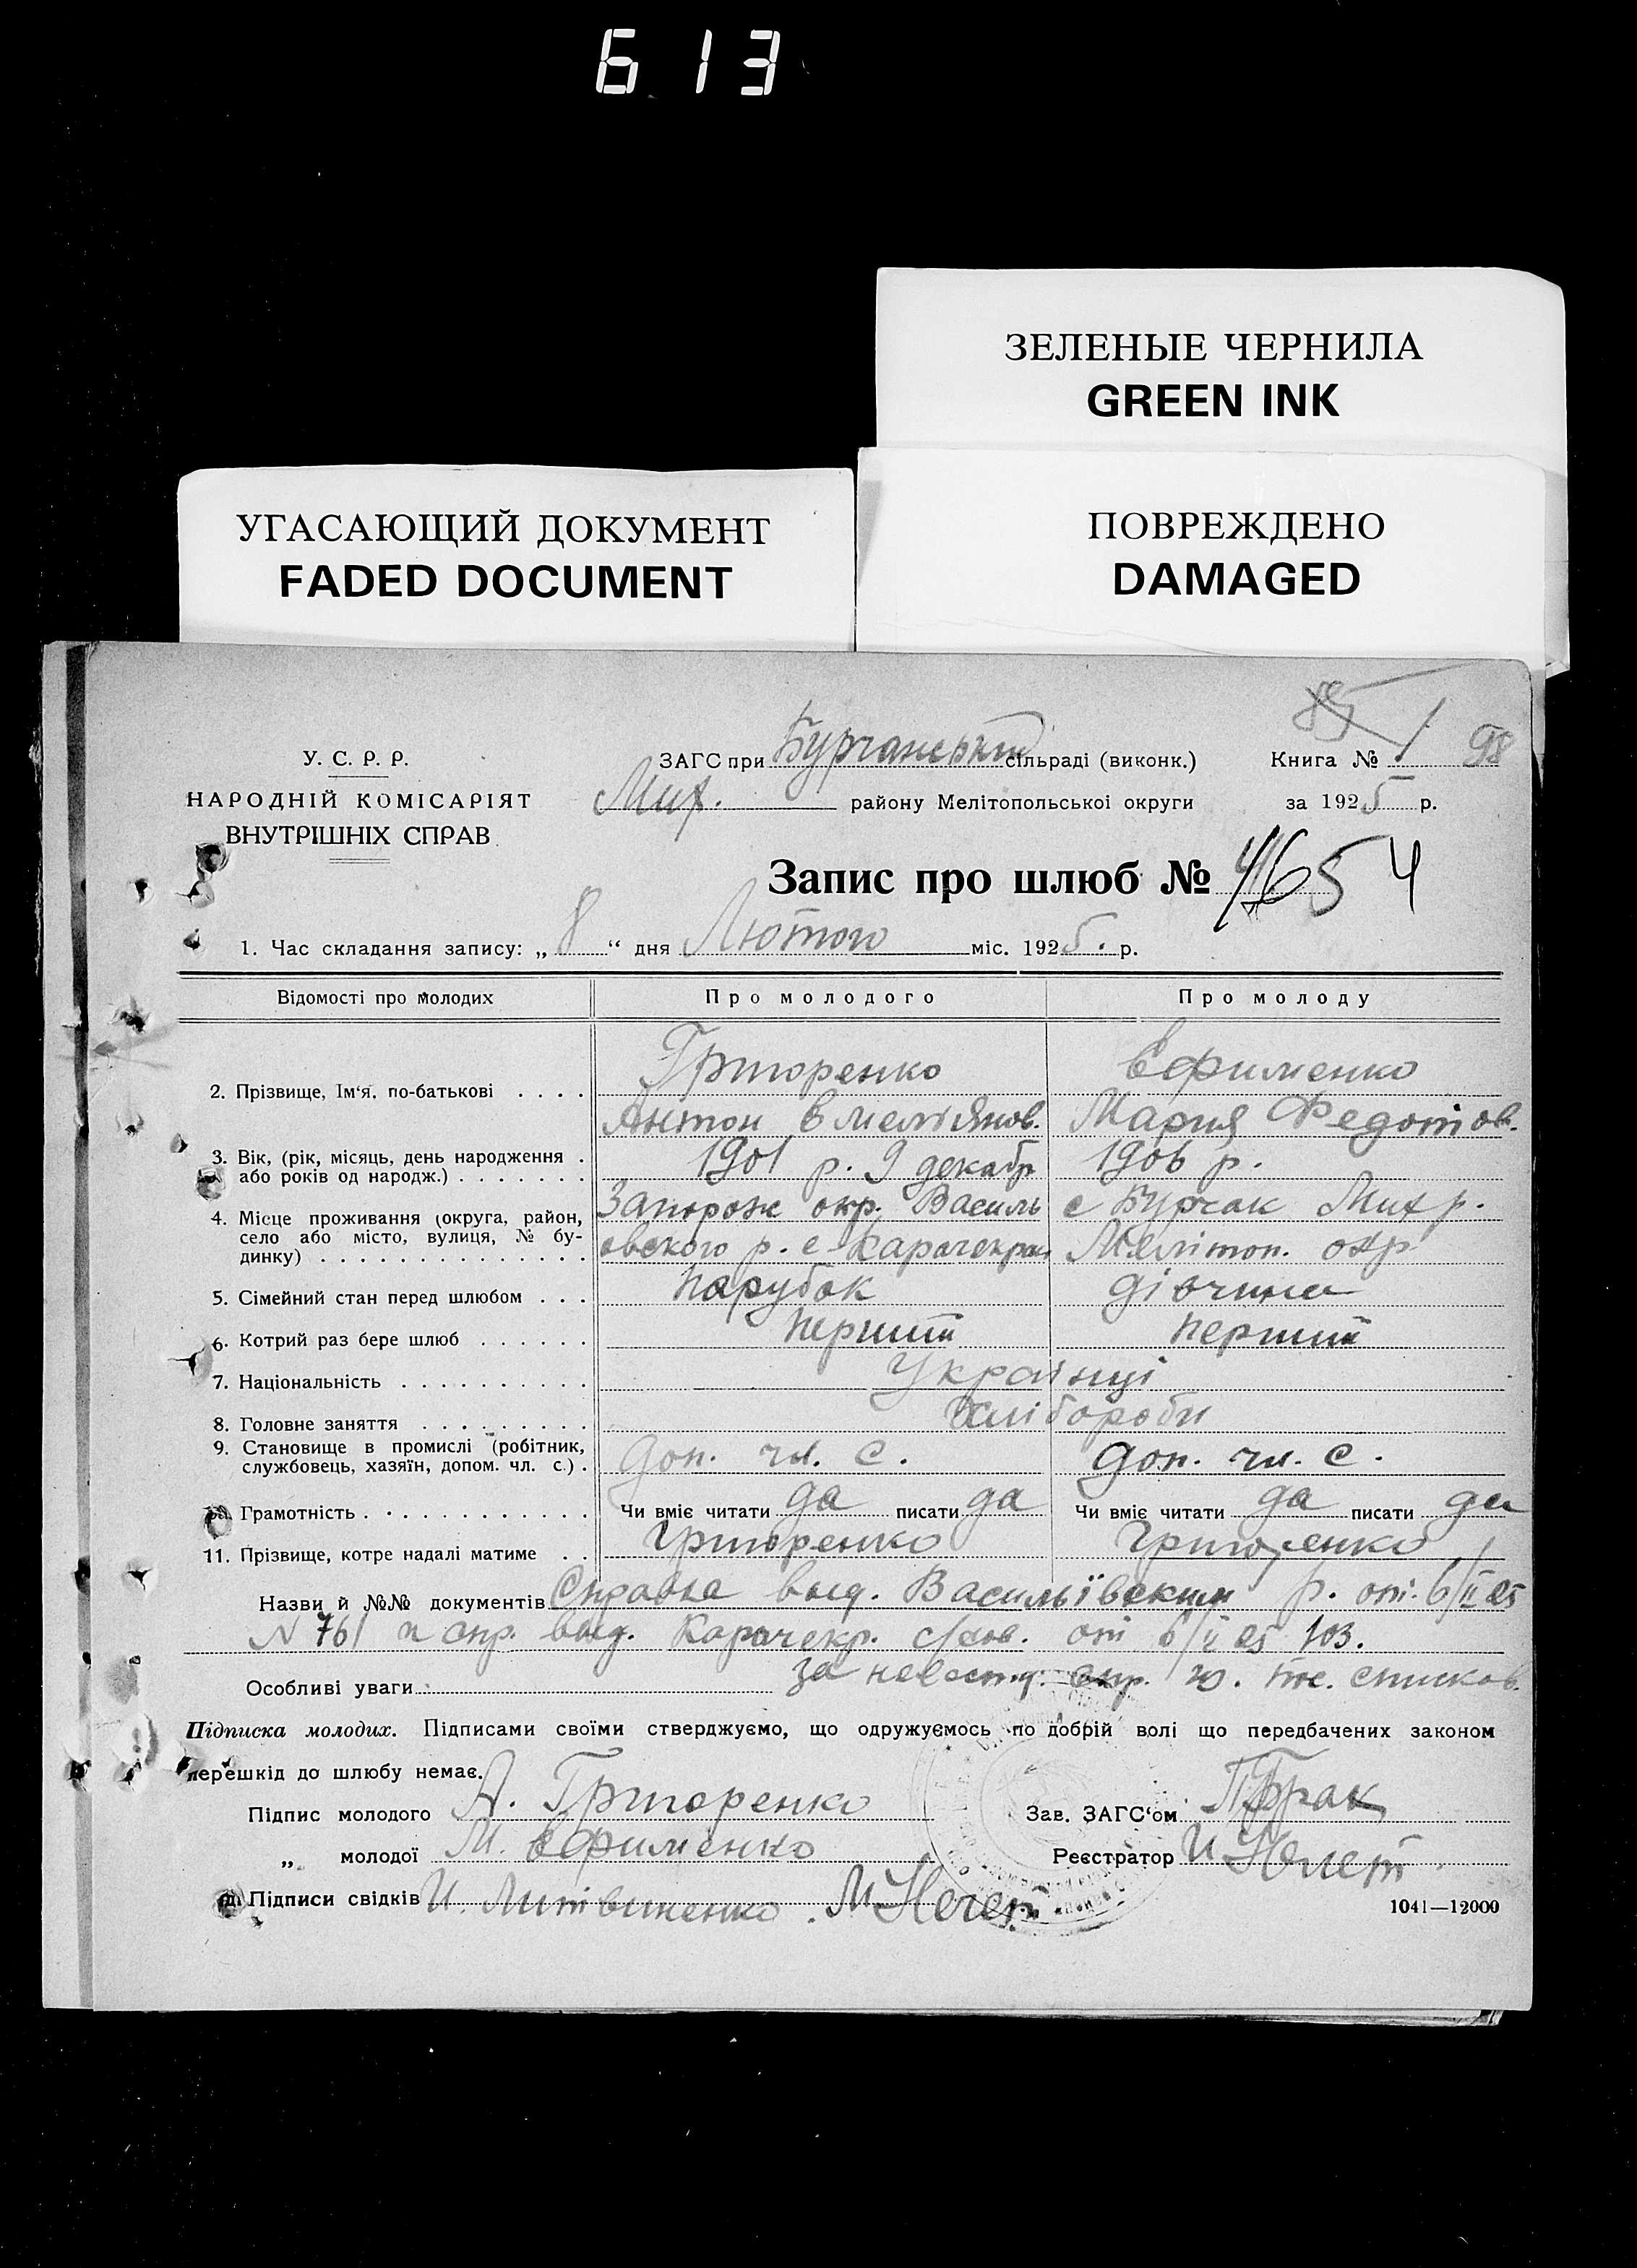 613
ЗЕЛЕНЫЕ ЧЕРНИЛА
GREEN INK
УГАСАЮЩИЙ ДОКУМЕНТ
FADED DOCUMENT
ПОВРЕЖДЕНО
DAMAGED
У. С. Р. Р.
НАРОДНІЙ КОМІСАРІЯТ
ВНУТРІШНІХ СПРАВ
98
ЗАГС при Бурчанський сільраді (виконк.) Книга № 1
Мих. району Мелітопольської округи за 1925 р.
Запис про шлюб № 4654
1. Час складання запису: „8“ дня Лютого міс. 1925. р.
Відомості про молодих Про молодого Про молоду
2. Прізвище, Ім'я, по-батькові Григоренко Ефименко
Антон Емельянов. Мария Федотов.
3. Вік, (рік, місяць, день народження 1901 р. 9 декабр 1906 р.
або років од народж.)
4. Місце проживання (округа, район, Запорож окр. Василь с Бурчак Мих р.
село або місто, вулиця, № бу- евского р. с Карачекрак Мелітоп. окр.
динку)
5. Сімейний стан перед шлюбом парубок дівчина
6. Котрий раз бере шлюб перший перший
7. Національність Українці
8. Головне заняття Хлібороби
9. Становище в промислі (робітник, Доп. чл. с. Доп. чл. с.
службовець, хазяїн, допом. чл. с.)
10. Грамотність Чи вміє читати да писати да Чи вміє читати да писати да
11. Прізвище, котре надалі матиме Григоренко Григоренко
Назви й №№ документів Справка выд. Васильївским р. от 6/II 25
N 761 и спр. выд. Карачекр. с/сов. от 6/II 25 103.
Особливі уваги за
списков.
Підписка молодих. Підписами своїми стверджуємо, що одружуємось по добрій волі що передбачених законом
перешкід до шлюбу немає.
Підпис молодого А. Григоренко Зав. ЗАГС'ом
„ молодої М. Ефименко Реєстратор
Підписи свідків И. Литвиненко.
1041—12000